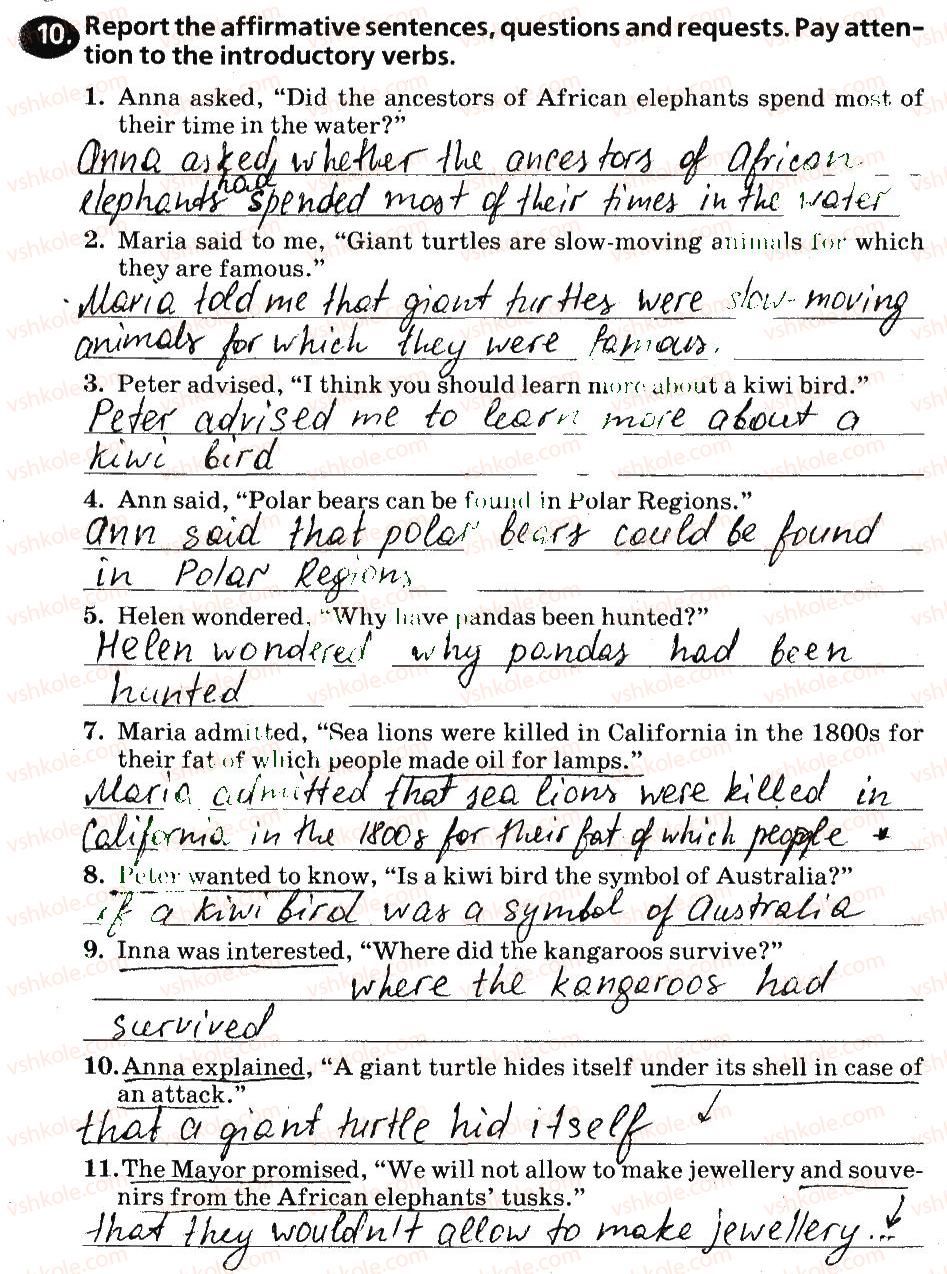 10. Report the affirmative sentences, questions and requests. Pay atten-
tion to the introductory verbs.
1. Anna asked, “Did the ancestors of African elephants spend most of
their time in the water?”
Anna asked, whether the ancestors of African
had
elephants spended most of their times in the water
2. Maria said to me, “Giant turtles are slow-moving animals for which
they are famous.”
Maria told me that giant turtles were slow-moving
animals for which they were famous.
3. Peter advised, “I think you should learn more about a kiwi bird.”
Peter advised me to learn more about a
kiwi bird
4. Ann said, “Polar bears can be found in Polar Regions.”
Ann said that polar bears could be found
in Polar Regions
5. Helen wondered, “Why have pandas been hunted?”
Helen wondered why pandas had been
hunted
7. Maria admitted, “Sea lions were killed in California in the 1800s for
their fat of which people made oil for lamps.”
Maria admitted that sea lions were killed in
California in the 1800s for their fat of which people
8. Peter wanted to know, “Is a kiwi bird the symbol of Australia?”
if a kiwi bird was a symbol of Australia
9. Inna was interested, “Where did the kangaroos survive?”
where the kangaroos had
survived
10. Anna explained, “A giant turtle hides itself under its shell in case of
an attack.”
that a giant turtle hid itself
11. The Mayor promised, “We will not allow to make jewellery and souve-
nirs from the African elephants’ tusks.”
that they wouldn't allow to make jewellery...